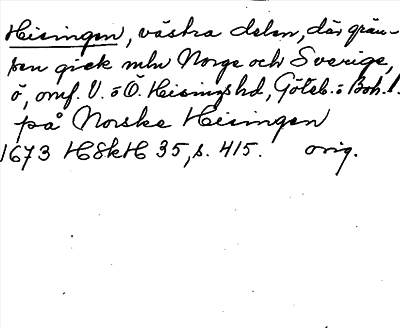 Hisingen, västra delen, där grän-
sen gick mln Norge och Sverige,
ö, omf. V. o Ö. Hisings hd, Göteb. o Boh. l.
på Norske Hisingen
1673 HSkH 35, s. 415. orig.